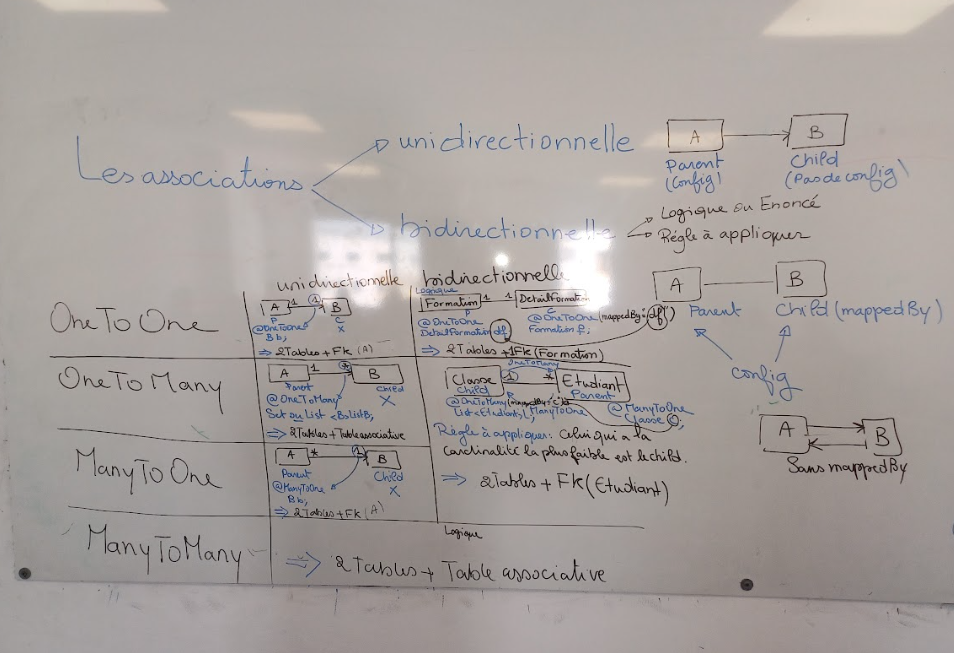 Les associations
unidirectionnelle
A
B
Parent
(Config)
Child
(Pas de config)
bidirectionnelle
Logique ou Enoncé
Régle à appliquer
A
B
Parent
Child (mappedBy)
config
A
B
Sans mappedBy
unidirectionnelle
bidirectionnelle
OneToOne
A 1 1 B
P
C
@OneToOne
X
B b;
=> 2Tables + FK (A)
Logique
Formation 1 1 DetailFormation
P
C
@OneToOne
DetailFormation df
@OneToOne (mappedBy="df")
Formation f;
=> 2 Tables + 1FK (Formation)
OneToMany
A 1 * B
Parent
Child
@OneToMany
X
Set ou List <B> ListB;
=> 2Tables + Table associative
OneToMany
Classe 1 * Etudiant
Child
Parent
@OneToMany
List<Etudiant> L;
ManyToOne
@ManyToOne
Classe c;
Règle à appliquer: Celui qui a la
cardinalité la plus faible est le child.
=> 2Tables + FK (Etudiant)
ManyToOne
A * 1 B
Parent
Child
@ManyToOne
X
B b;
=> 2 Tables + FK (A)
ManyToMany
Logique
=> 2 Tables + Table associative